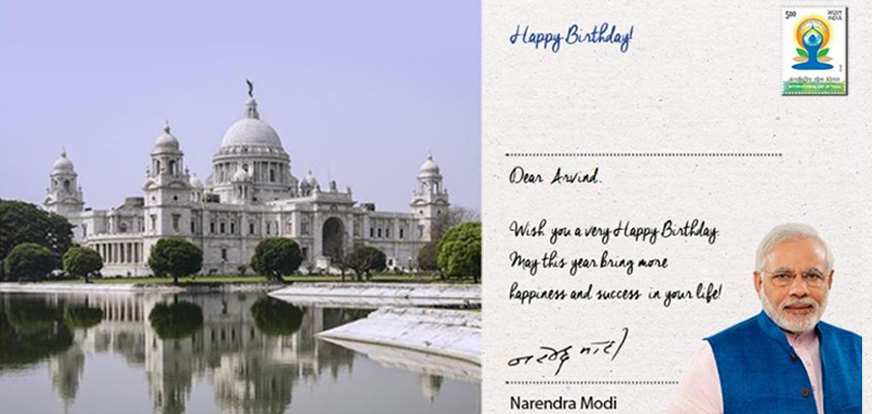 Happy Birthday!
5.00
भारत
INDIA
अंतर्राष्ट्रीय योग दिवस
INTERNATIONAL DAY OF YOGA
Dear Arvind,
Wish you a very Happy Birthday.
May this year bring more
happiness and success in your life!
नरेन्द्र मोदी
Narendra Modi